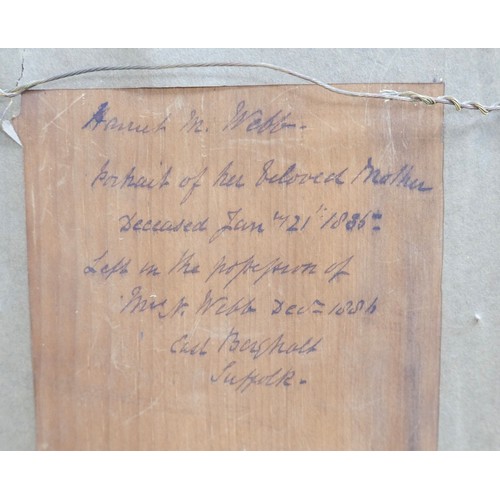 Harriet M. Webb.
Portrait of her beloved Mother
Deceased Jany 21st 1885
Left in the possession of
Webb Decr 1886
East Bergholt
Suffolk.